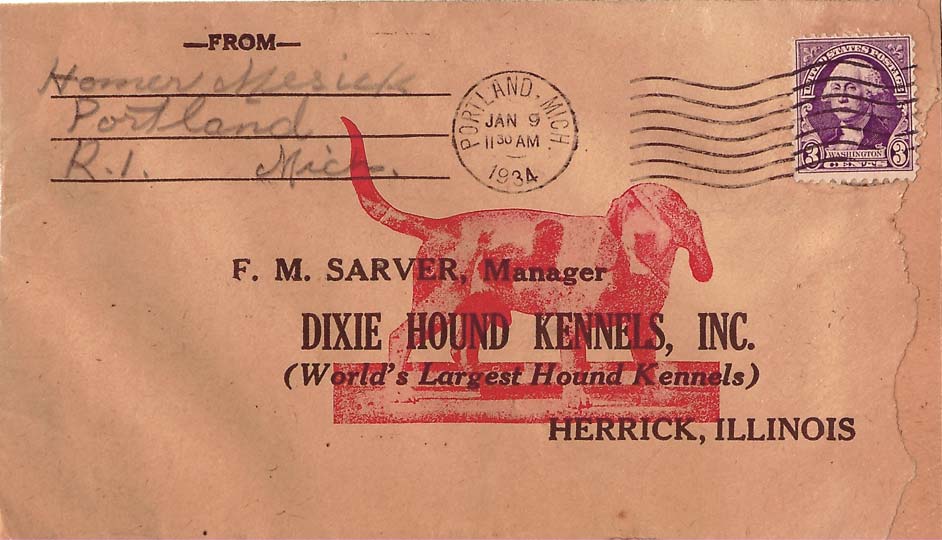 —FROM—
Homer Mesick
Portland
R.1. Mich.
PORTLAND · MICH.
JAN 9
11 30 AM
1934
UNITED STATES POSTAGE
3 WASHINGTON 3
CENTS
F. M. SARVER, Manager
DIXIE HOUND KENNELS, INC.
(World's Largest Hound Kennels)
HERRICK, ILLINOIS